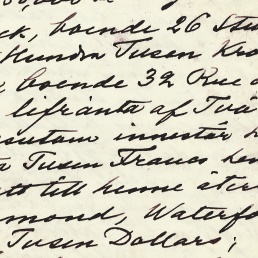 ck, boende 26 Stu
Hundra Tusen Kro
boende 32 Rue
lifränta af Tvä
esutom innestår
a Tusen Francs hen
att till henne åter
mond, Waterfo
Tusen Dollars;